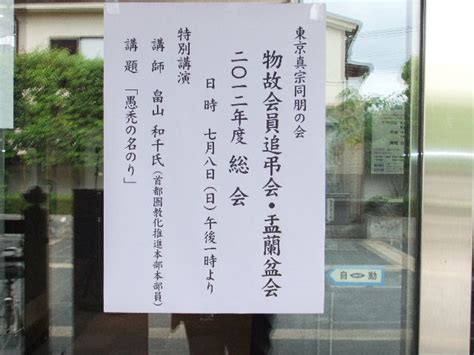 東京真宗同朋の会
物故会員追弔会・盂蘭盆会
二〇一二年度 総会
日時 七月八日（日）午後一時より
特別講演
講師 畠山 和千氏（首都圏教化推進本部本部員）
講題 「愚禿の名のり」
自動